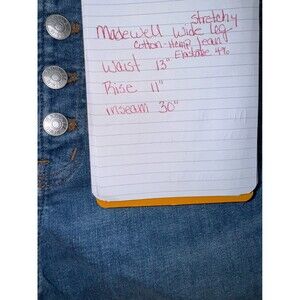 Stretchy
Madewell Wide Leg
Cotton-Hemp Jeans
Elastane 4%
Waist 13"
Rise 11"
inseam 30"